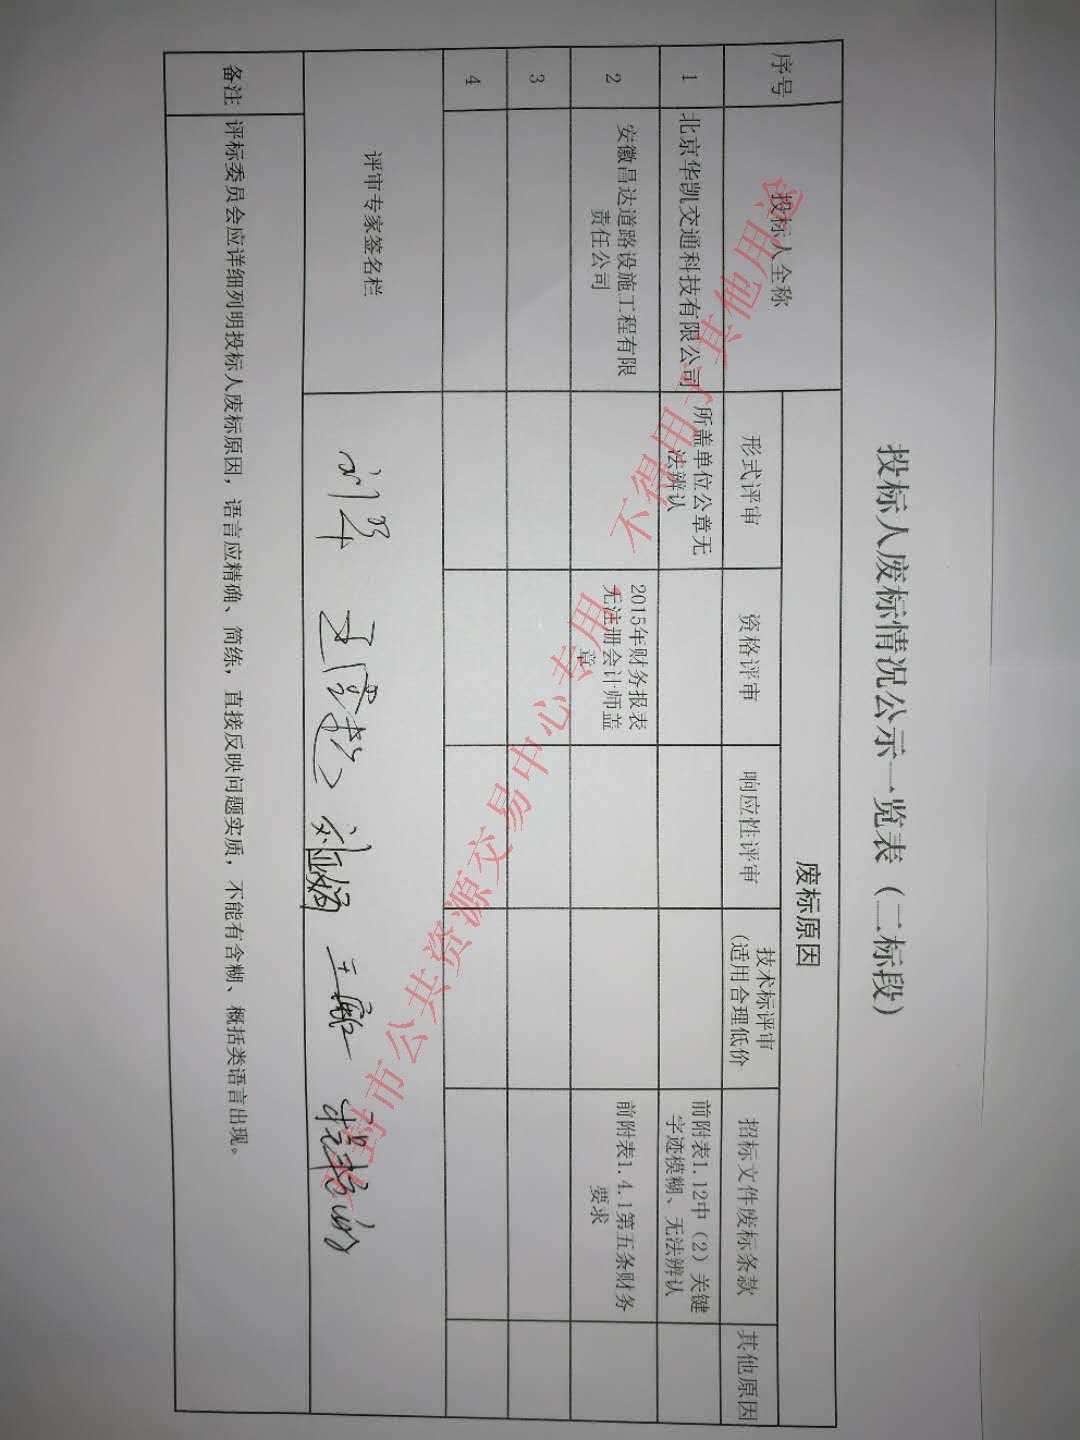 投标人废标情况公示一览表（二标段）
序号
投标人全称
废标原因
形式评审
资格评审
响应性评审
技术标评审
（适用合理低价
招标文件废标条款
其他原因
1
北京华凯交通科技有限公司
所盖单位公章无
法辨认
前附表1.12中（2）关键
字迹模糊、无法辨认
2
安徽昌达道路设施工程有限
责任公司
2015年财务报表
无注册会计师盖
章
前附表1.4.1第五条财务
要求
3
4
评审专家签名栏
备注
评标委员会应详细列明投标人废标原因，语言应精确、简练，直接反映问题实质，不能有含糊、概括类语言出现。
封市公共资源交易中心专用，不得用于其他用途